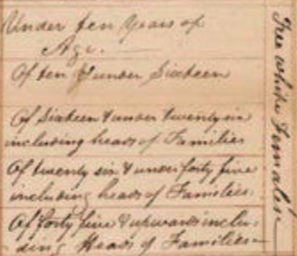 Under ten Years of
Age.
Of ten & under Sixteen
Of Sixteen & under twenty six
including heads of Families
Of twenty six & under forty five
including heads of Families.
Of forty five & upwards inclu-
ding Heads of Families
Free white Females